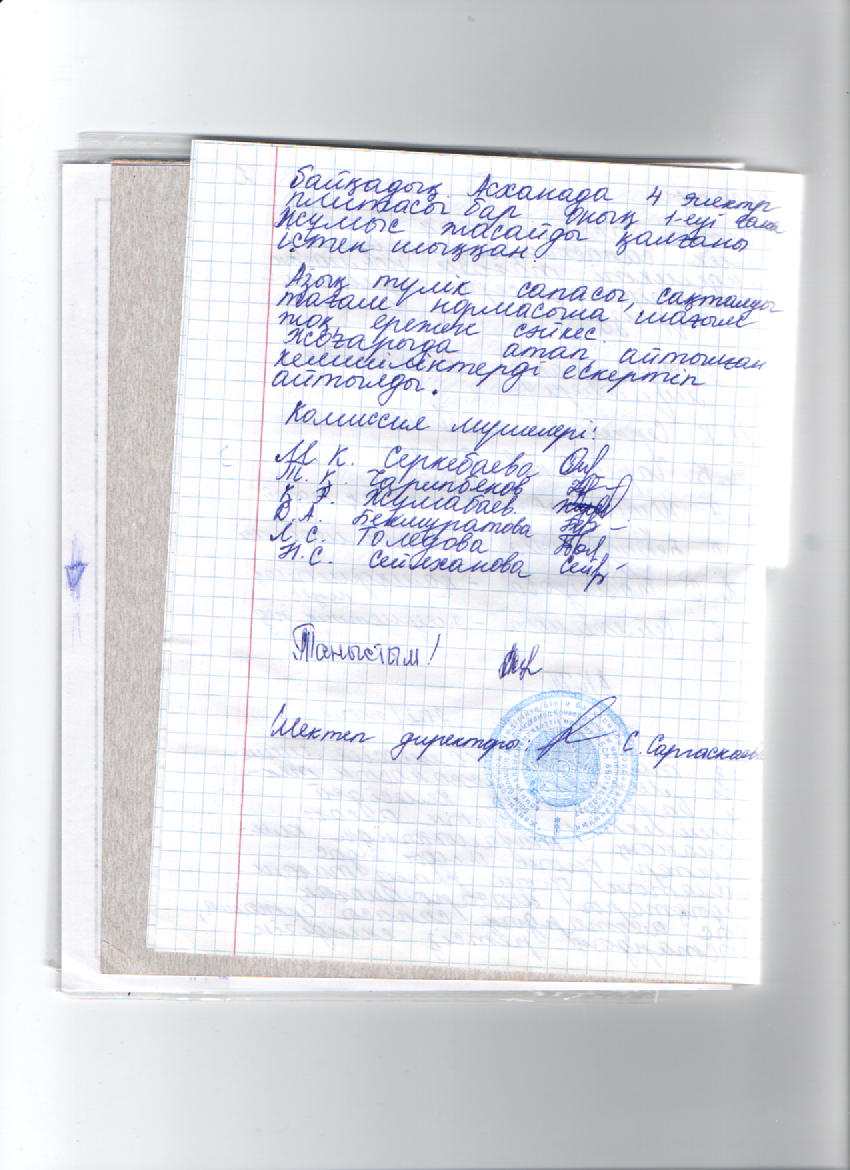 байқадық. Асханада 4 электр
плитасы бар оның 1-еуі ғана
жұмыс жасайды қалғаны
істен шыққан.
Азық түлік сапасы, сақталуы
тағам нормасына шағым
жоқ ережеге сәйкес.
Жоғарыда атап айтылған
келісіліктерді ескертіп
айтылды.
Комиссия мүшелері:
М. К. Серкебаева
Т. К. Чарипбеков
К. Р. Жумабаев.
Д. А. Бекмуратова
Л. С. Толедова
Н. С. Сейлханова
Таныстым!
Мектеп директоры: С. Саргаскаева